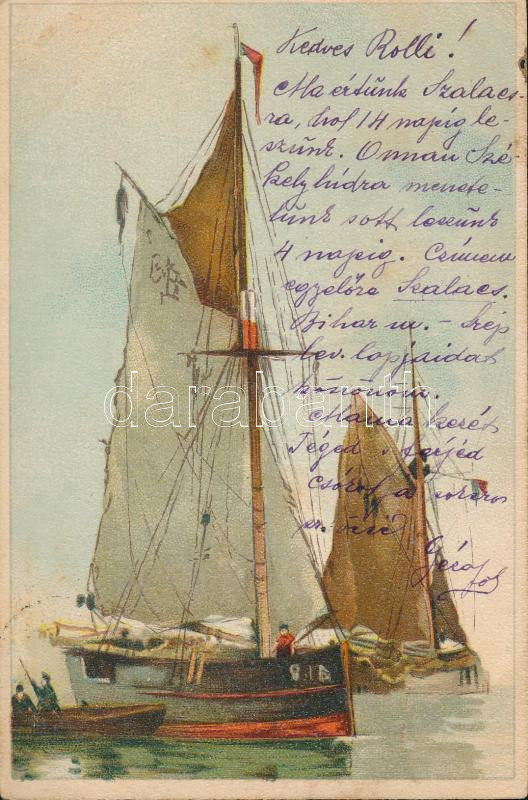 Kedves Rolli!
Ma értünk Szalacs-
ra, hol 14 napig le-
szünk. Onnan Szé-
kelyhídra menete-
lünk s ott leszünk
4 napig. Címem
egyelőre Szalacs.
Bihar m. – Szép
lev. lapjaidat
köszönöm.
Mama kezét
Téged s férjed
csókol a
Géza
darabanth
914